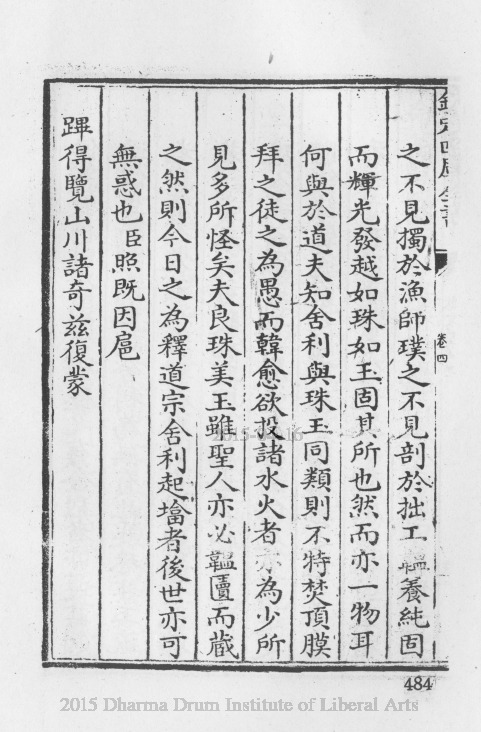 欽定四庫全書
卷四
之不見擉於漁師璞之不見剖於拙工韞養純固
而輝光發越如珠如玉固其所也然而亦一物耳
何與於道夫知舍利與珠玉同類則不特焚頂膜
拜之徒之為愚而韓愈欲投諸水火者亦為少所
見多所怪矣夫良珠美玉雖聖人亦必韞匵而藏
之然則今日之為釋道宗舍利起墖者後世亦可
無惑也臣照既因扈
蹕得覽山川諸奇兹復蒙
484
2015 Dharma Drum Institute of Liberal Arts